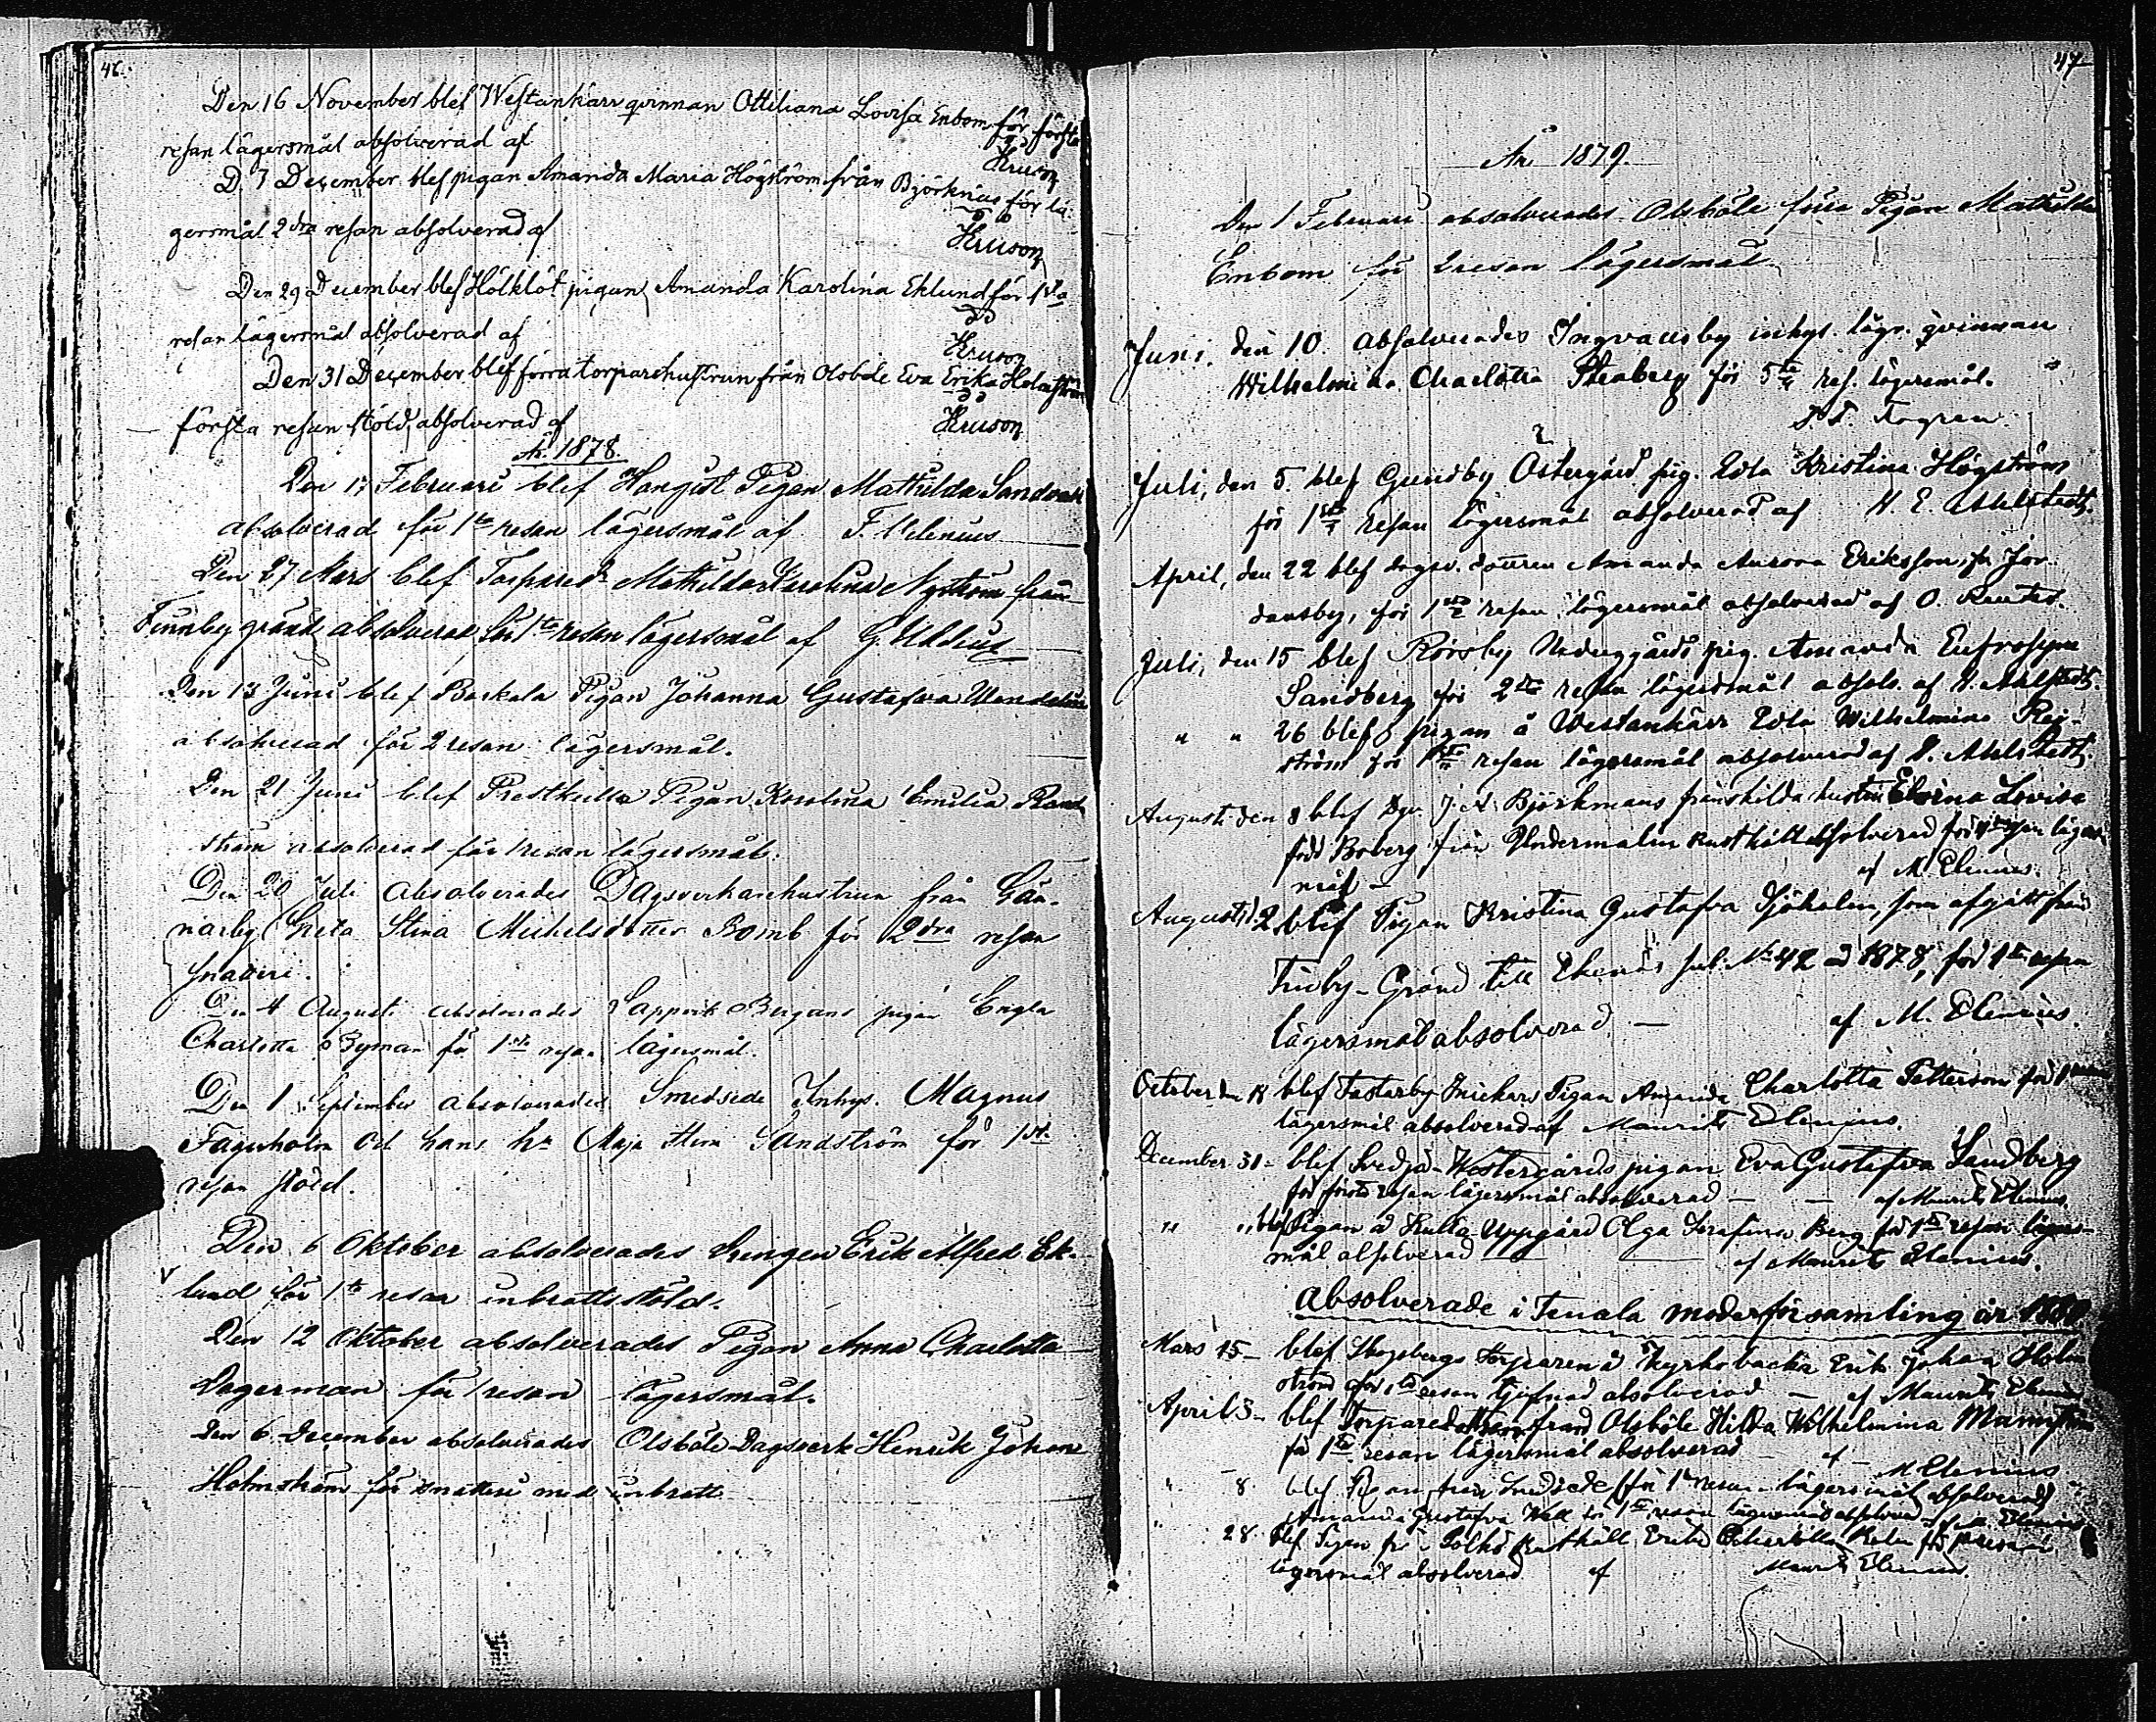 46.
Den 16 November blef Westankärr qvinnan Ottiliana Lovisa Enbom för första
resan lägersmål absolverad af
Kruson
D. 7 December blef pigan Amanda Maria Högström från Björknäs för lä-
germål 2dra resan absolverad af
Kruson
Den 29 December blef Hölklöt pigan Amanda Karolina Eklund för 1sta
resan lägersmål absolverad af
Kruson
Den 31 December blef förra torparehustrun från Olsböle Eva Erika Holmström
första resan stöld absolverad af
Kruson
År 1878.
Den 17 Februari blef Hangist Pigan Mathilda
absolverad för 1ta resan lägersmål af F. Elenius
Den 27 Mars blef Torpared. Mathilda Karolina Nyström från
Finnby gränd absolverad för 1ta resan lägersmål af G.
Den 13 Juni blef Baskala Pigan Johanna Gustafva
absolverad för 2 resan lägersmål.
Den 21 Juni blef Prestkulla Pigan Karolina Emilia Rand
ström absolverad för 1 resan lägersmål.
Den 20 Juli absolverades Dagsverkarehustrun från Gun-
narby Greta Stina Michelsdotter Bomb för 2dra resan
snatteri.
Den 4 Augusti absolverades Lappvik Bergans pigan Engla
Charlotta Byman för 1sta resan lägersmål.
Den 1 September absolverades Smedsede Inhys. Magnus
Fagerholm och hans hu Maja Stina Sandström för 1sta
resan stöld.
Den 6 Oktober absolverades Drengen Erik Alfred Ek-
lund för 1ta resan inbrottsstöld.
Den 12 Oktober absolverades Pigan Anna Charlotta
Dagerman för 1 resan lägersmål.
Den 6 December absolverades Olsböle Dagsverk Henrik Johan
Holmström för snatteri med inbrott
47
År 1879.
Den 1 Februari absolverades Olsböle förra Pigan Mathilda
Enbom för 2 resan lägersmål
Juni. den 10. absolverades Ingvallsby inhys. lägr. qvinnan
Wilhelmina Charlotta Stenberg för 5te res. lägersmål.
Juli, den 5. blef Gundby Östergård pig. Edla Kristina Högström
för 1sta resan lägersmål absolverad af H. E. Ahlstedt.
April, den 22 blef dagsv. dottren Amanda Aurora Eriksson, fr. Jor-
dansby, för 1sta resan lägersmål absolverad af O.
Juli, den 15 blef Rörsby Nedergårds pig. Amanda Eufrosyne
Sandberg för 2dra resan lägersmål absolv. af H. Ahlstedt.
" " 26 blef pigan å Westankärr Edla Wilhelmina Rej-
ström för 1sta resan lägersmål absolverad af H. Ahlstedt.
Augusti den 8 blef Dgv. J. A. Björkmans frånskilda hustru Lovisa
född Boberg från Undermalm rusthåll absolverad för resan lägers
mål - af M. Elenius.
Augusti d. 2 blef Pigan Kristina Gustafva Sjöholm, som afgått från
Gränd till Ekenäs sub. No 42 ad 1878, för 1ta resan
lägersmål absolverad - af M. Elenius.
October den 18 blef Fastarby Snickars Pigan Amanda Charlotta Petterson för 1 resan
lägersmål absolverad af Maurits Elenius.
December 31 - blef Svedja-Westergårds pigan Eva Gustafva Sandberg
för första resan lägersmål absolverad - - af Maurits Elenius.
" " blef Pigan å Kulla-Uppgård Olga Josefina Berg för 1ta resan lägers-
mål absolverad - af Maurits Elenius.
Absolverade i Tenala moderförsamling år 1880
Mars 15 - blef Skogsbergs torparen å Kyrkobacka Erik Johan Holm
ström för resan tjufnad absolverad - af Maurits Elenius
April 3 - blef Torparedottren från Olsböle Hilda Wilhelmina
för 1ta resan lägersmål absolverad - af - M Elenius
" 8. blef från för 1 resan lägersmål absolverad
Amanda Gustafva för 1ta resan lägersmål absolverad af M. Elenius
" 28. blef Pigan fr. rusthåll Charlotta för resan
lägersmål absolverad af Maurits Elenius